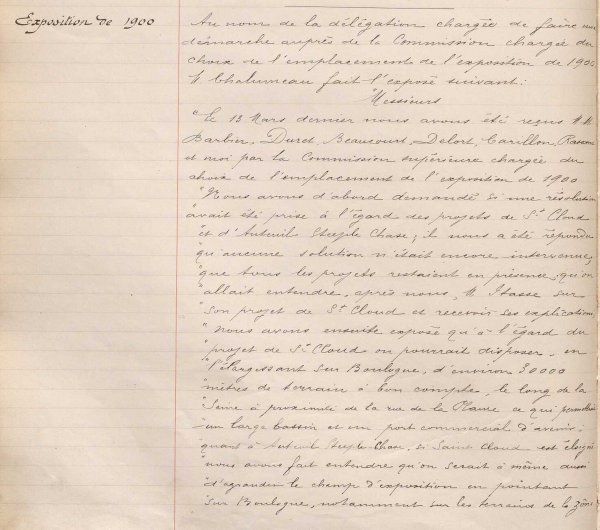 Exposition de 1900
Au nom de la délégation chargée de faire une
démarche auprès de la Commission chargée du
choix de l'emplacement de l'exposition de 1900
M. Chaluveau fait l'exposé suivant:
Messieurs
"Le 13 Mars dernier nous avons été reçus M.M.
Barbier, Duret, Beaucourt, Delort, Carillon,
et moi par la Commission supérieure chargée du
choix de l'emplacement de l'exposition de 1900
"Nous avons d'abord demandé si une résolution
"avait été prise à l'égard des projets de St Cloud
"et d'Auteuil Steeple Chase; il nous a été répondu
"qu'aucune solution n'était encore intervenue,
"que tous les projets restaient en présence, qu'on
"allait entendre, après nous, M. Itasse sur
"son projet de St Cloud et recevoir ses explications
"Nous avons ensuite exposé qu'à l'égard du
"projet de St Cloud on pourrait disposer, en
"l'élargissant sur Boulogne, d'environ 30000
"mètres de terrain à bon compte, le long de la
"Seine à proximité de la rue de la Plaine ce qui
"un large bassin et un port commercial d'avenir;
"quant à Auteuil Steeple Chase, si Saint Cloud est éloigné
"nous avons fait entendre qu'on serait à même aussi
"d'agrandir le champ d'exposition en pointant
"sur Boulogne, notamment sur les terrains de la zône